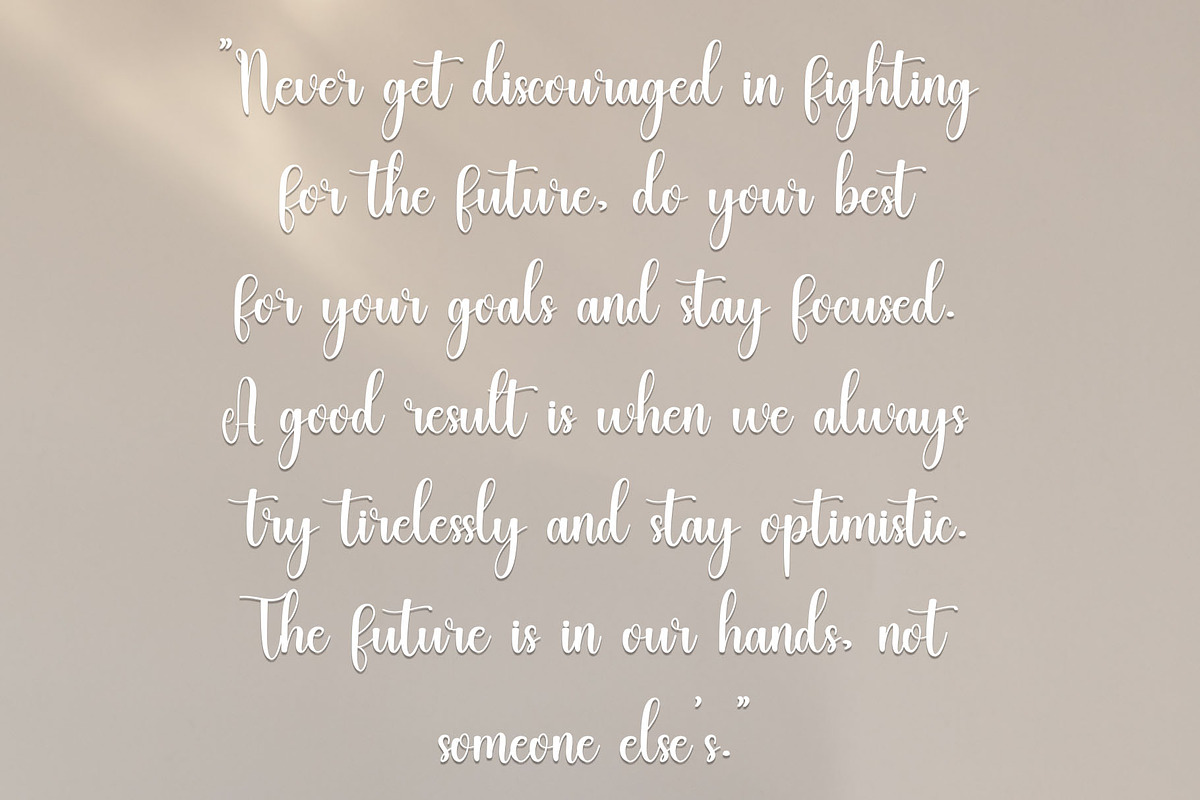 "Never get discouraged in fighting
for the future, do your best
for your goals and stay focused.
A good result is when we always
try tirelessly and stay optimistic.
The future is in our hands, not
someone else's."